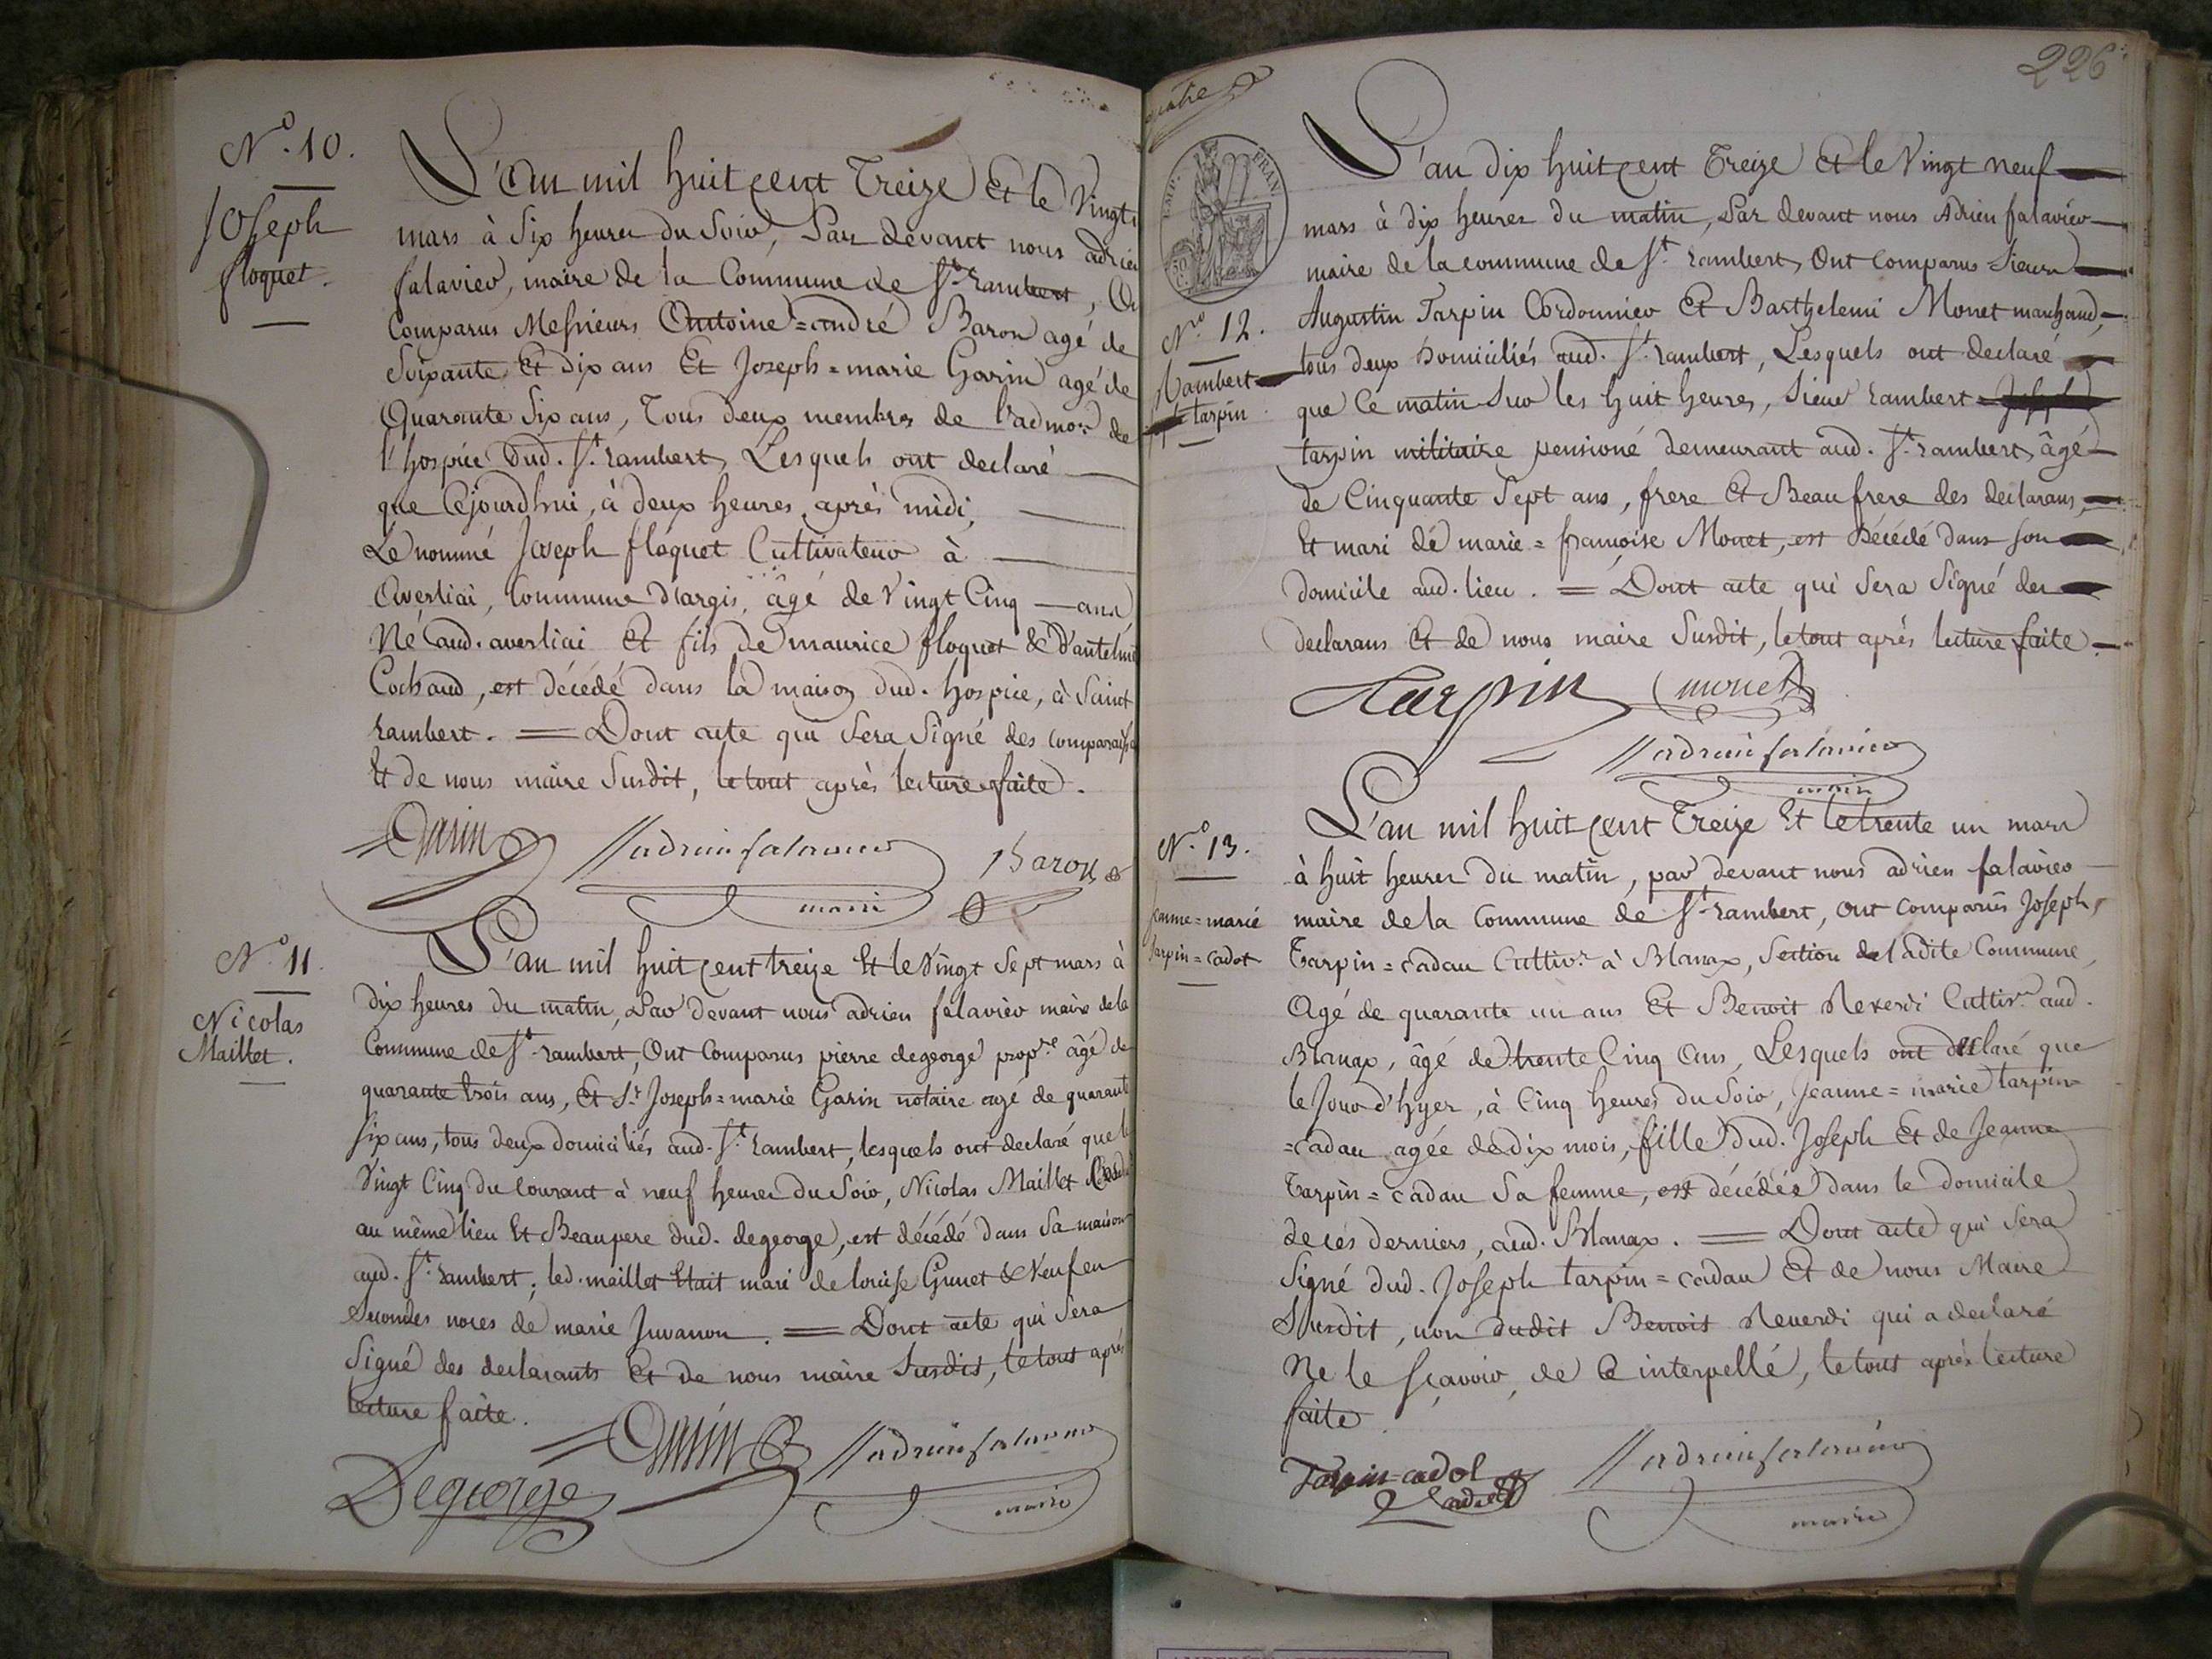 N.o 10.
Joseph
floquet.
L'an mil huit cent Treize Et le Vingt
mars à Six heures du Soir, Par devant nous adrien
falavier, maire de la Commune de St. rambert, Ont
Comparus Messieurs Antoine=andré Baron agé de
Soixante Et dix ans Et Joseph=marie Garin agé de
Quarante Six ans, Tous deux membres de l'admon. de
l'hospice Dud. St. rambert, Lesquels ont declaré
que Cejourdhui, à deux heures après midi,
Le nommé Joseph floquet Cultivateur à
Averliai, Commune d'argis, âgé de Vingt Cinq — ans,
Né aud. averliai Et fils de maurice floquet & d'antelme
Cochaud, est décédé dans la maison dud. hospice, à Saint
rambert. = Dont acte qui Sera Signé des comparaiss
Et de nous maire Susdit, le tout après lecture faite.
Garin adrien falavier Baron
maire
N.o 11.
Nicolas
Maillet.
L'an mil huit cent treize Et le Vingt Sept mars à
dix heures du matin, Par devant nous adrien falavier maire de la
Commune de St. rambert, Ont Comparus pierre degeorge propre. âgé de
quarante trois ans, Et Sr. Joseph=marie Garin notaire agé de quarante
six ans, tous deux domiciliés aud. St. rambert, lesquels ont declaré que le
Vingt Cinq du Courant à neuf heures du Soir, Nicolas Maillet
au même lieu Et Beaupere dud. degeorge, est décédé dans Sa maison
aud. St. rambert; led. maillet Etait mari de louise Grunet & Veuf en
Secondes noces de marie Juvanon. = Dont acte qui Sera
Signé des declarants Et de nous maire Susdit, le tout après
lecture faite.
Garin adrien falavier
Degeorge maire
226
EMP. FRAN
N.ro 12.
Rambert
tarpin
L'an dix huit cent Treize Et le Vingt neuf
mars à dix heures du matin, Par devant nous Adrien falavier
maire de la commune de St. rambert, Ont Comparus Sieurs
Augustin Tarpin Cordonnier Et Barthelemi Monet marchand,
tous deux Domiciliés aud. St. rambert, Lesquels ont declaré
que Ce matin Sur les huit heures, Sieur rambert
tarpin militaire pensioné demeurant aud. St. rambert, âgé
de Cinquante Sept ans, frere Et Beau frere des declarans,
Et mari de marie=françoise Monet, est Décédé dans Son
domicile aud. lieu. = Dont acte qui Sera Signé des
declarans Et de nous maire Susdit, le tout après lecture faite.
Tarpin monet
adrien falavier
maire
N.o 13.
Jeanne=marie
tarpin=cadot
L'an mil huit cent Treize Et le trente un mars
à huit heures du matin, par devant nous adrien falavier
maire de la Commune de St. rambert, Ont Comparus Joseph
Tarpin=cadau Cultivr. à Blanax, Section de ladite Commune,
Agé de quarante un ans Et Benoit Reverdi Cultivr. aud.
Blanax, âgé de trente Cinq Ans, Lesquels ont declaré que
le Jour d'hyer, à Cinq heures du Soir, Jeanne=marie tarpin=
=cadau agée de dix mois, fille dud. Joseph Et de Jeanne
Tarpin=cadau Sa femme, est décédée dans le domicile
de ces derniers, aud. Blanax. = Dont acte qui Sera
Signé dud. Joseph tarpin=cadau Et de nous Maire
Susdit, non dudit Benoit Reverdi qui a declaré
Ne le sçavoir, de Ce interpellé, le tout après lecture
faite.
Tarpin=cadot adrien falavier
maire